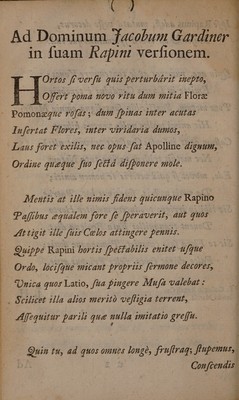 ( )
Ad Dominum Jacobum Gardiner
in suam Rapini versionem.
HOrtos si versu quis perturbárit inepto,
Offert poma novo ritu dum mitia Floræ
Pomonæque rosas; dum spinas inter acutas
Insertat Flores, inter viridaria dumos,
Laus foret exilis, nec opus sat Apolline dignum,
Ordine quæque suo sectâ disponere mole.
Mentis at ille nimis fidens quicunque Rapino
Passibus æqualem fore se speraverit, aut quos
Attigit ille suis Cœlos attingere pennis.
Quippe Rapini hortis spectabilis enitet usque
Ordo, locisque micant propriis sermone decores,
Unica quos Latio, sua pingere Musa valebat:
Scilicet illa alios meritò vestigia terrent,
Assequitur parili quæ nulla imitatio gressu.
Quin tu, ad quos omnes longè, frustraq; stupemus,
Conscendis